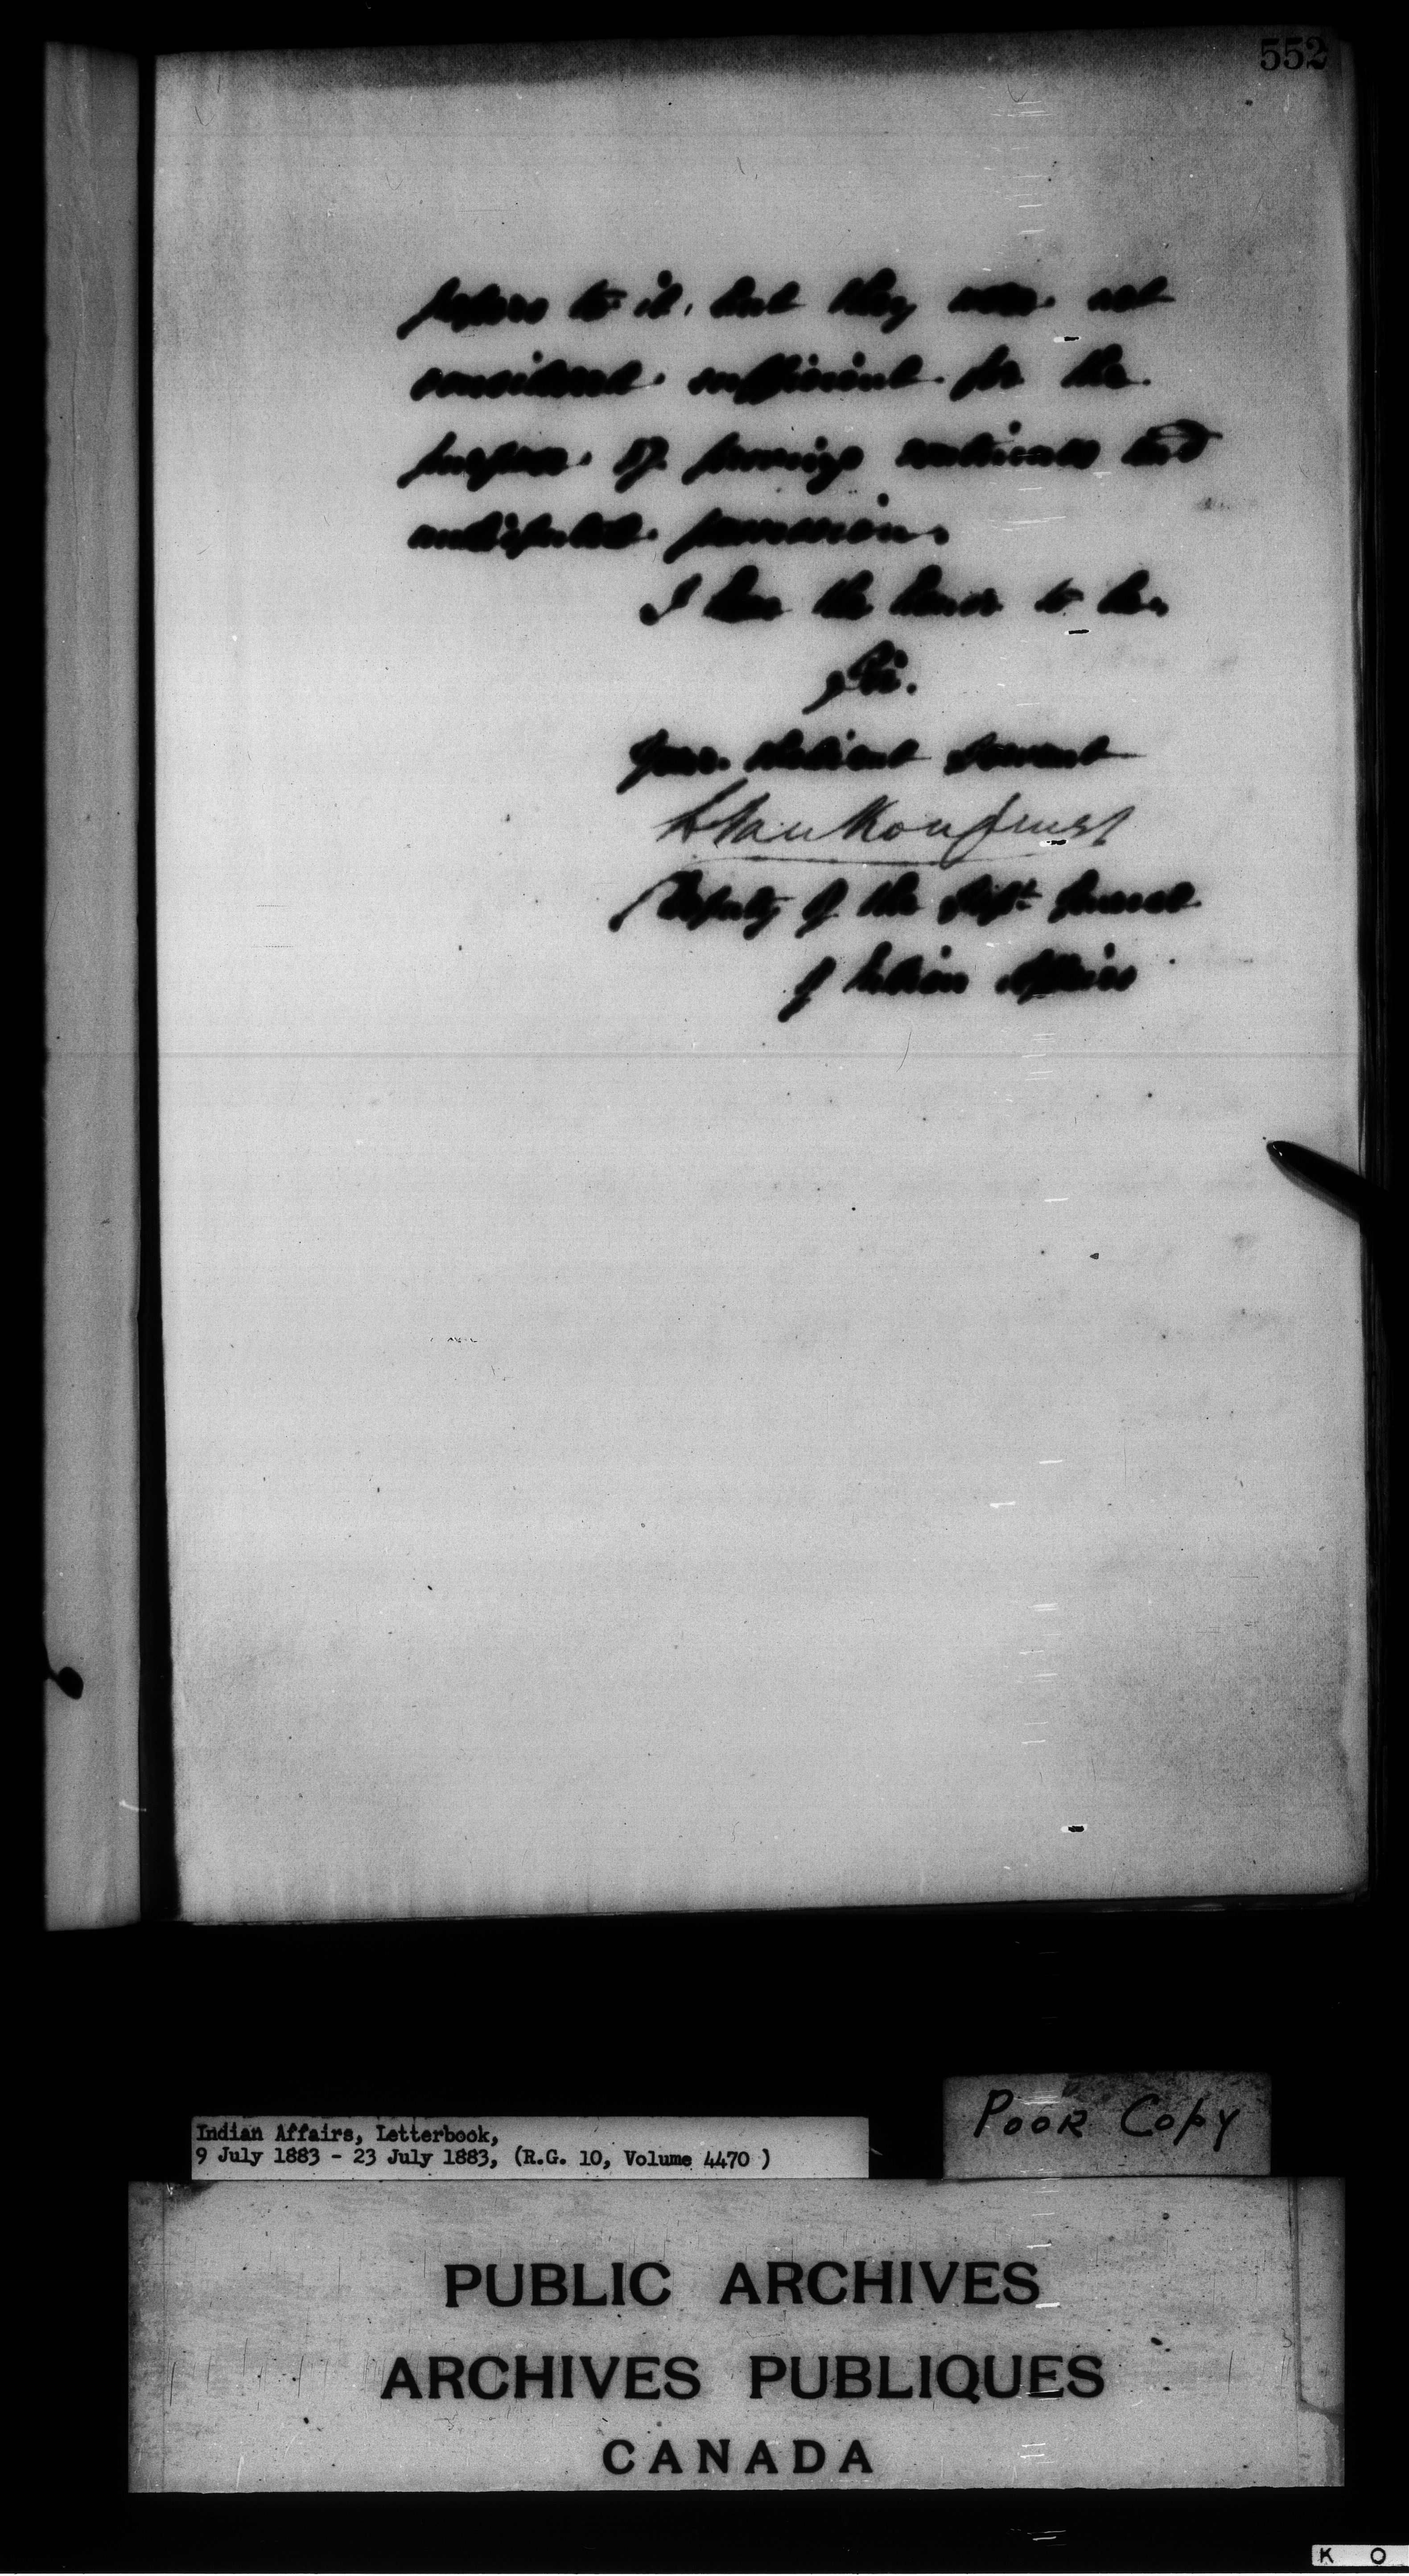 552
papers to it, but they were not
considered sufficient for the
purpose of proving continued and
undisputed possession.
I have the honor to be,
Sir.
Your obedient servant
L Vankoughnet
Deputy of the Supt General
of Indian Affairs
Indian Affairs, Letterbook,
9 July 1883 - 23 July 1883, (R.G. 10, Volume 4470 )
POOR COPY
PUBLIC ARCHIVES
ARCHIVES PUBLIQUES
CANADA
K O